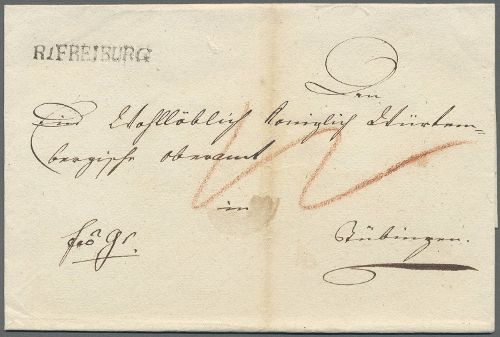 R1FREIBURG
Den
Wohllöblich Königlich Würtem-
bergische Oberamt
in
Tübingen.